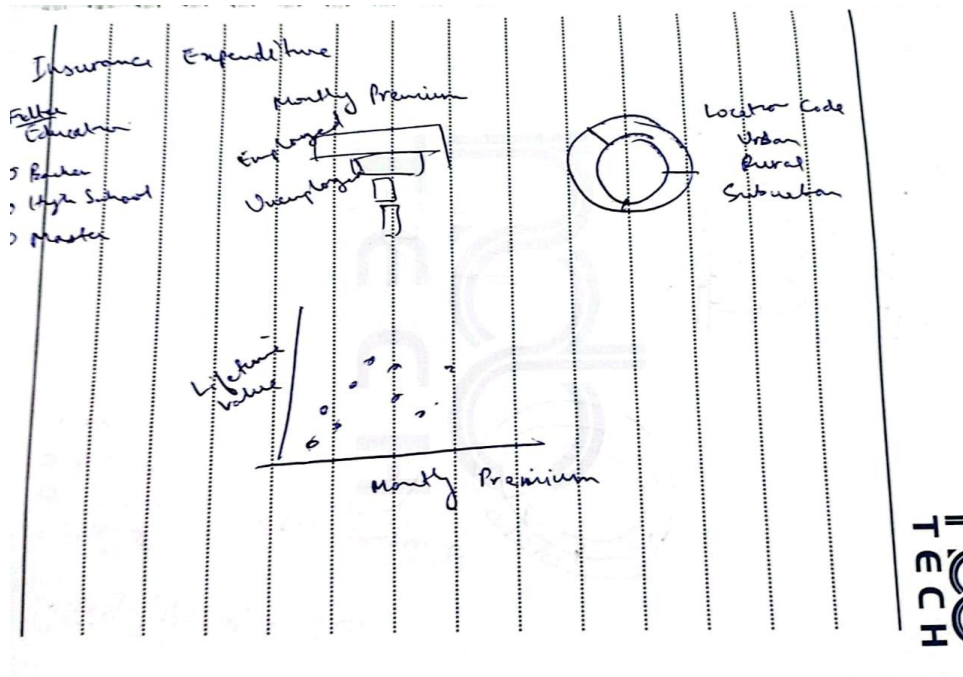 Insurance Expenditure
Filter
Education
Bachelor
High School
Master
Montly Premium
Employed
Unemployed
Location Code
Urban
Rural
Suburban
Lifetime
Value
Montly Premium
TECH